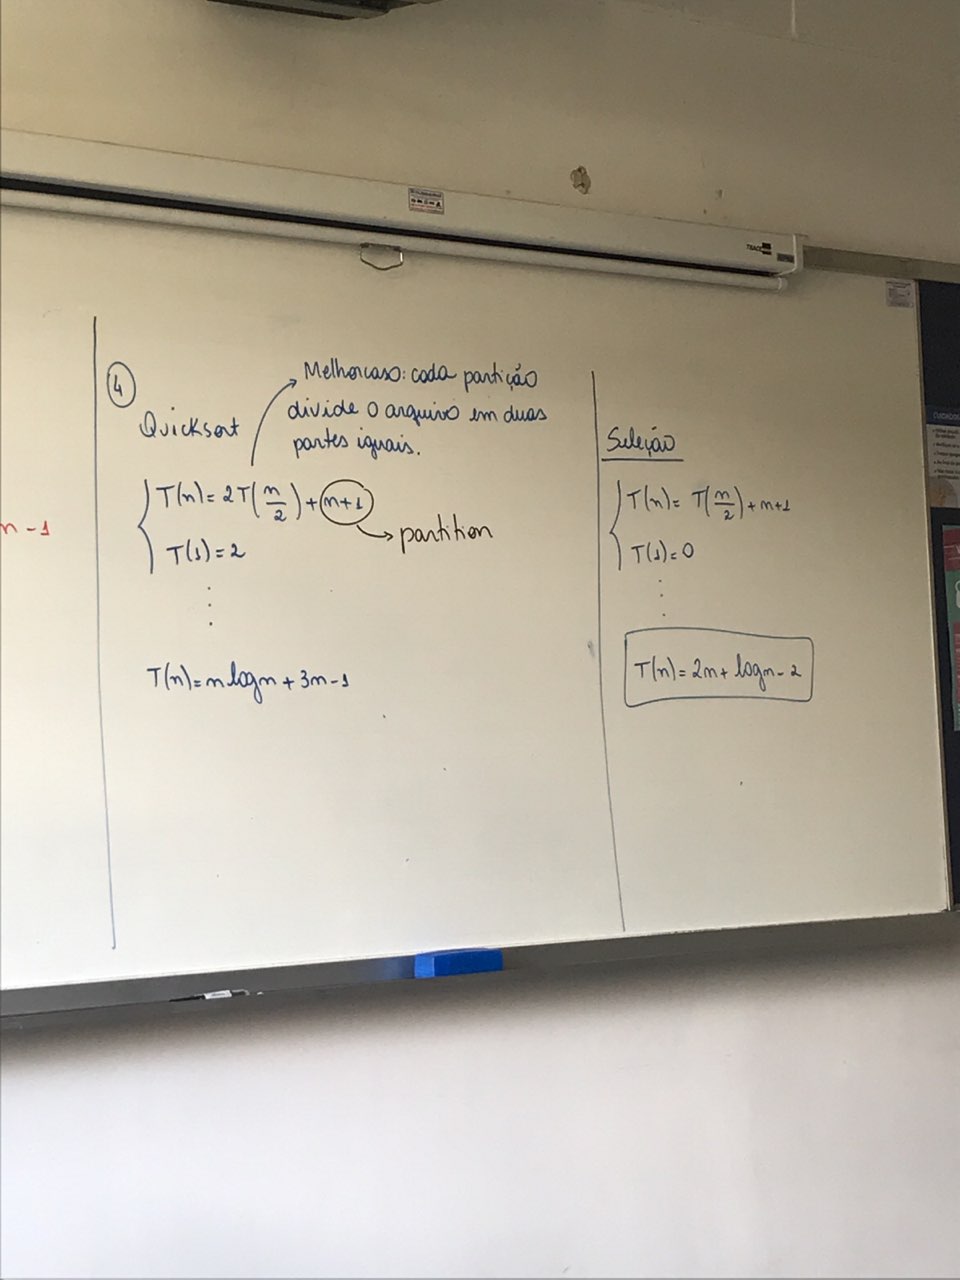 n-1
4
Quicksort
Melhor caso: cada partição
divide o arquivo em duas
partes iguais.
T(n) = 2T(n/2) + n+1
partition
T(1) = 2
T(n) = n log n + 3n - 1
Seleção
T(n) = T(n/2) + n+1
T(1) = 0
T(n) = 2n + log n - 2
CUIDADOS